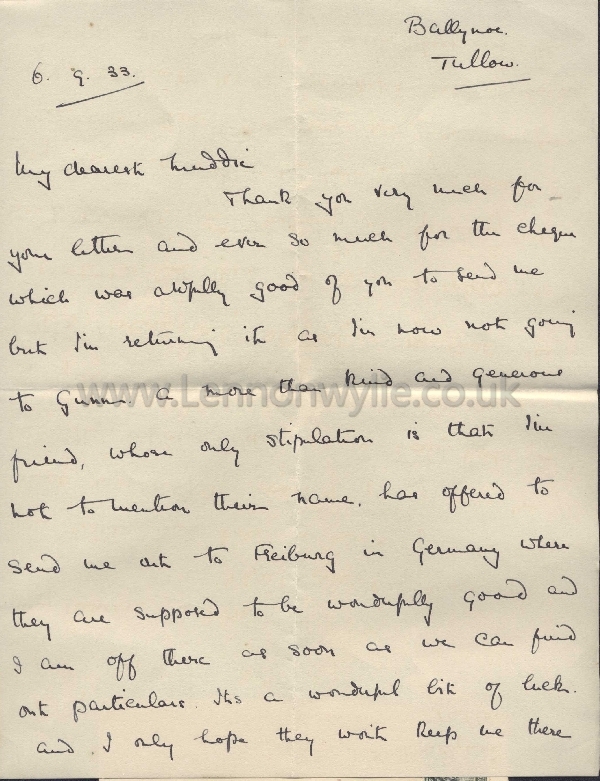 Ballynoe.
Tullow.
6. 9. 33.
My dearest Muddie
Thank you very much for
your letter and ever so much for the cheque
which was awfully good of you to send me
but I'm returning it as I'm now not going
to Gunn. A more than kind and generous
www.Lennonwylie.co.uk
friend, whose only stipulation is that I'm
not to mention their name, has offered to
send me out to Freiburg in Germany where
they are supposed to be wonderfully good and
I am off there as soon as we can find
out particulars. Its a wonderful bit of luck.
and I only hope they won't keep me there